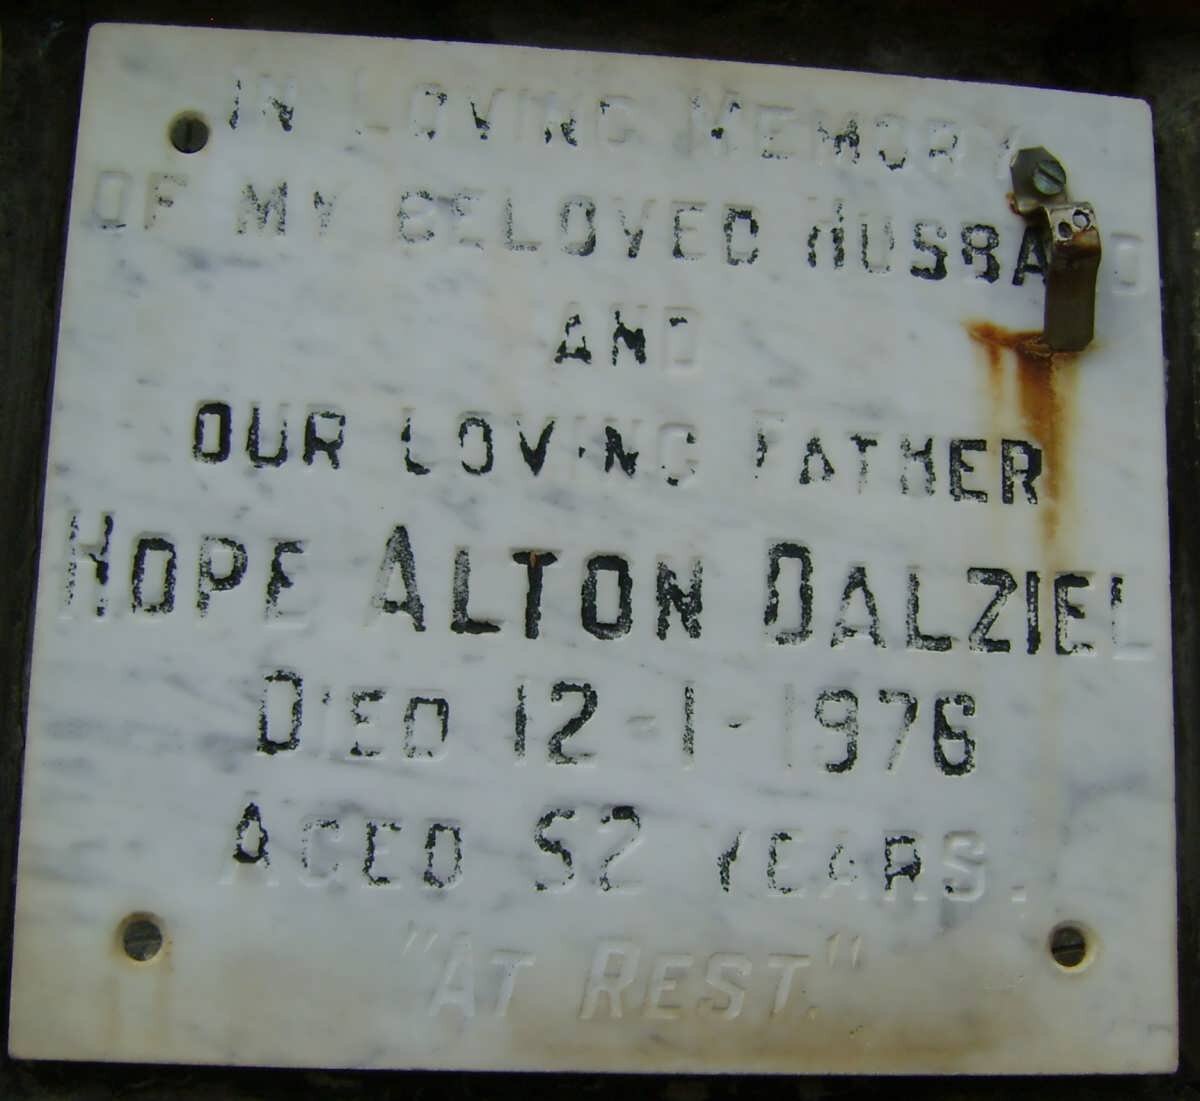 IN LOVING MEMORY
OF MY BELOVED HUSBAND
AND
OUR LOVING FATHER
HOPE ALTON DALZIEL
DIED 12-1-1976
AGED 52 YEARS.
"AT REST."